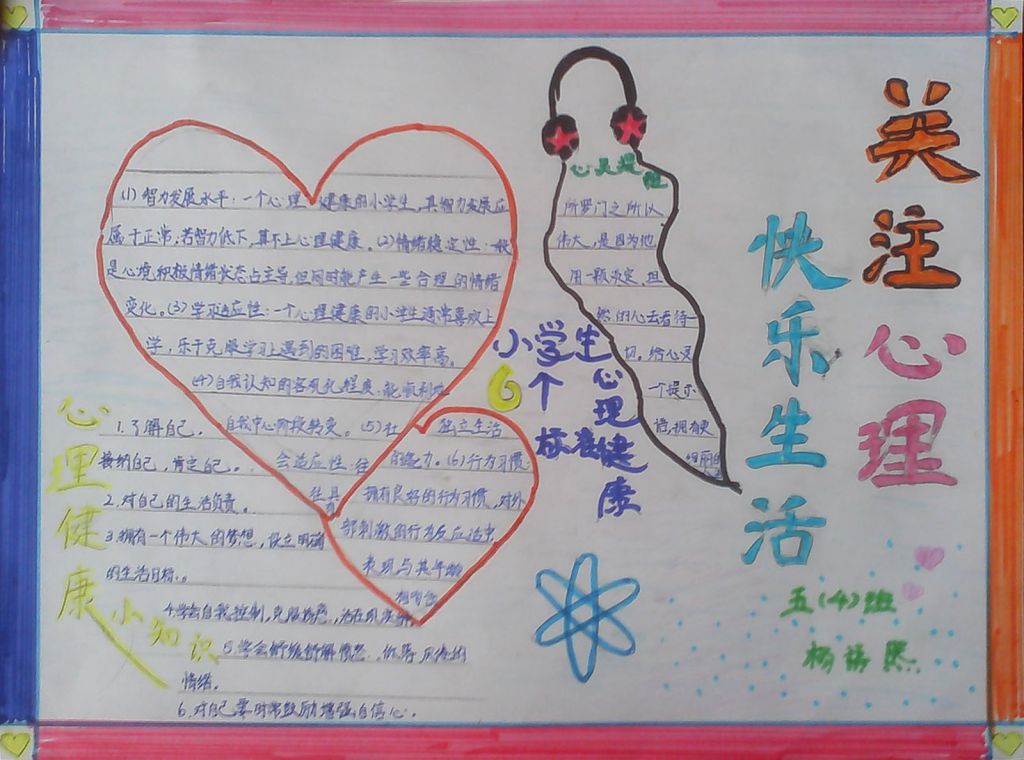 关注心理
快乐生活
五(4)班
心灵提醒
所罗门之所以
伟大，是因为他
用一颗淡定，坦
然的心去看待一
切。给心灵
一个提示
语，拥有更
小学生
6个
标准
心理健康
(1) 智力发展水平：一个心理健康的小学生，其智力发展应
属于正常；若智力低下，算不上心理健康。(2)情绪稳定性：一般
是心境，积极情绪状态占主导，但同时能产生一些合理的情绪
变化。(3)学习适应性：一个心理健康的小学生通常喜欢上
学，乐于克服学习上遇到的困难，学习效率高。
(4)自我认知的客观化程度：能顺利地
自我中心阶段转变。(5)社
会适应性：往
往具
有
独立生活
的能力。(6)行为习惯：
拥有良好的行为习惯，对外
部刺激的行为反应适中，
表现与其年龄
相吻合
心理健康小知识
1.了解自己，
接纳自己，肯定自己。
2.对自己的生活负责。
3.拥有一个伟大的梦想，设立明确
的生活目标。
4.学会自我控制，克服
5.学会舒缓
情绪。
6.对自己要时常鼓励增强自信心。